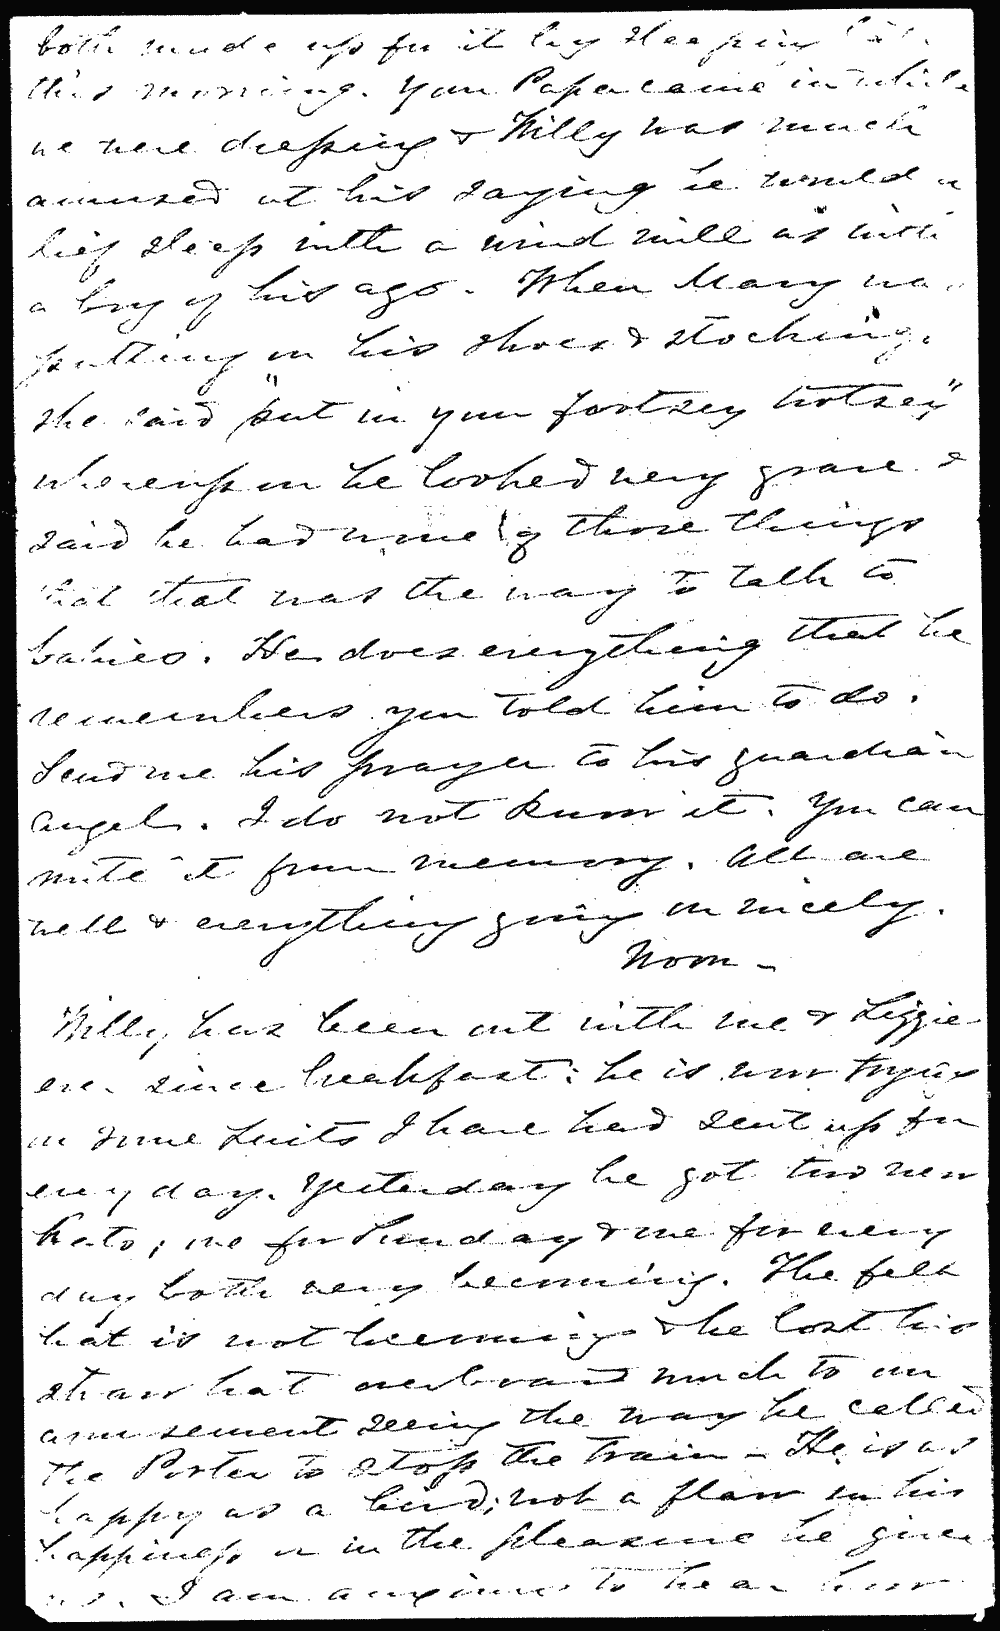 both made up for it by sleeping late
this morning. Your Papa came in while
we were dressing & Willy was much
amused at his saying he would as
lief sleep with a wind mill as with
a boy of his age. When Mary was
putting on his shoes & stockings
she said "put in your footsey trotsey"
whereupon he looked very grave &
said he had none of those things
that that was the way to talk to
babies. He does everything that he
remembers you told him to do.
Send me his prayer to his guardian
angel. I do not know it. You can
write it from memory. All are
well & everything going on nicely.
Noon -
Willy has been out with me & Lizzie
ever since breakfast: he is now trying
on some suits I have had sent up for
every day. Yesterday he got two new
hats; one for Sunday & one for every
day both very becoming. The felt
hat is not becoming & he lost his
straw hat overboard much to our
amusement seeing the way he called
the Porter to stop the train - He is as
happy as a bird; not a flaw in his
happiness or in the pleasure he gives
us. I am anxious to hear how